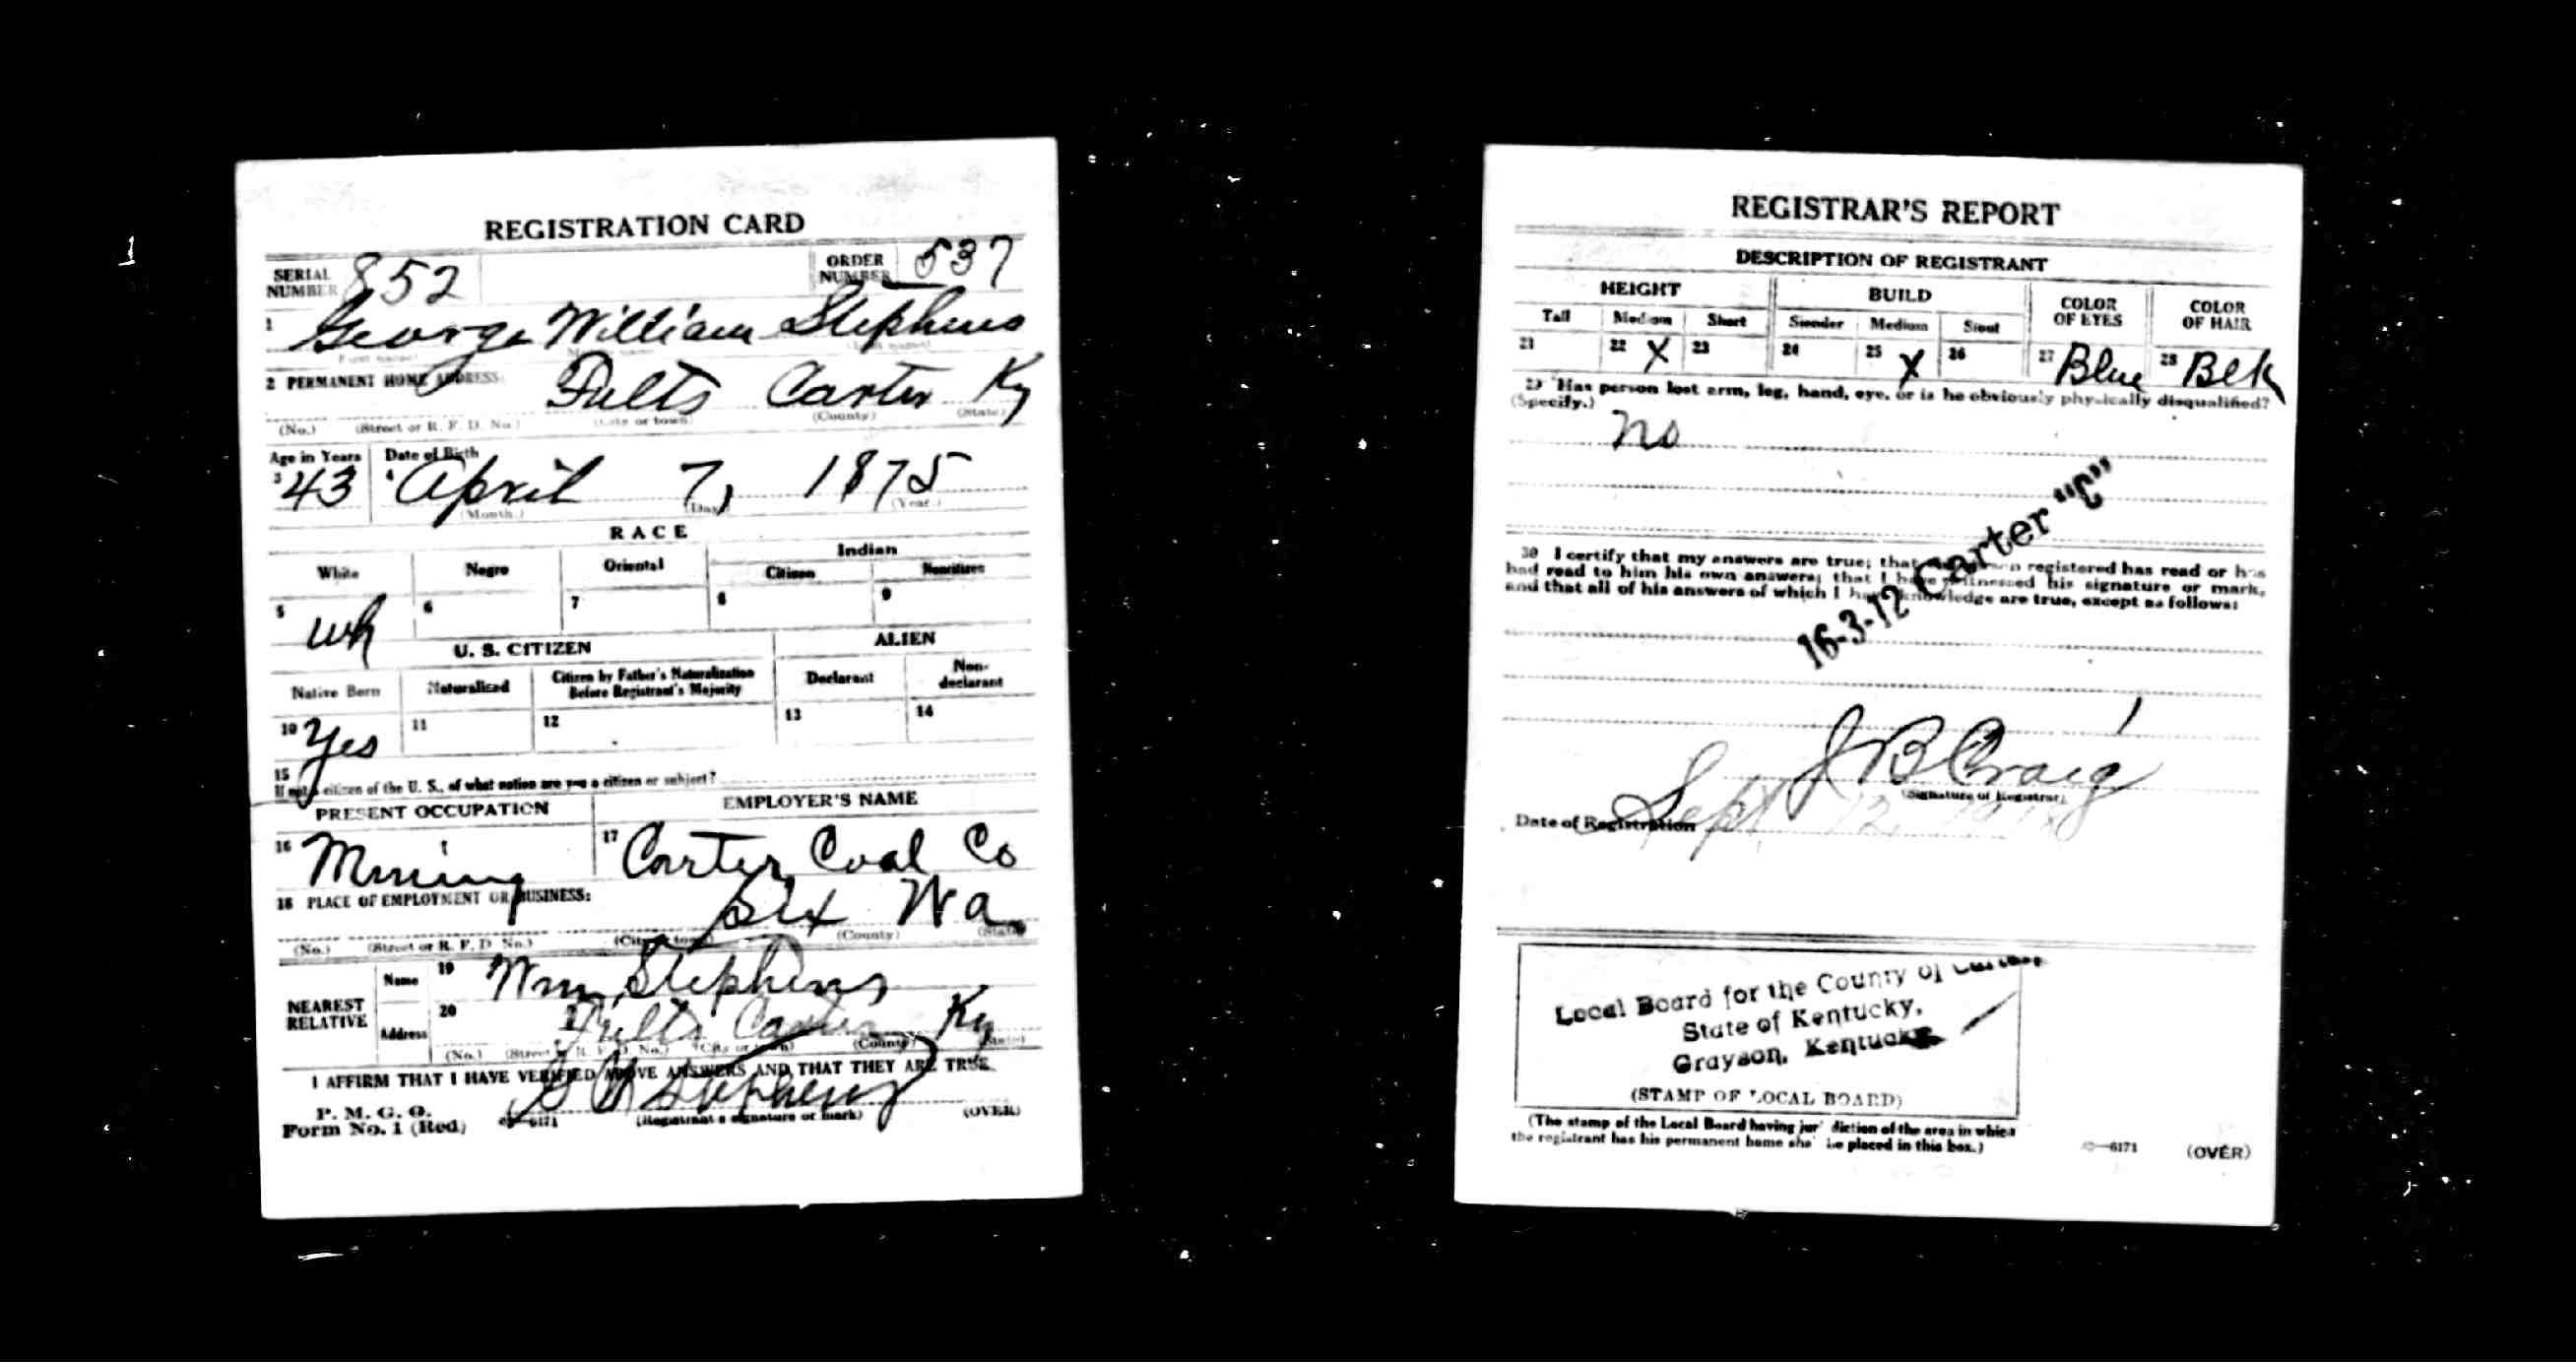 1
REGISTRATION CARD
SERIAL NUMBER 852 ORDER NUMBER 537
1 George William Stephens
2 PERMANENT HOME ADDRESS:
Fults Carter Ky
(No.) (Street or R. F. D. No.) (City or town) (County) (State)
Age in Years Date of Birth
3 43 4 April 7, 1875
(Month.) (Day.) (Year.)
RACE
White Negro Oriental Indian
Citizen Noncitizen
5 Wh 6 7 8 9
U. S. CITIZEN ALIEN
Native Born Naturalized Citizen by Father's Naturalization Before Registrant's Majority Declarant Non-declarant
10 Yes 11 12 13 14
15
If not a citizen of the U. S., of what nation are you a citizen or subject?
PRESENT OCCUPATION EMPLOYER'S NAME
16 Mining 17 Carter Coal Co
18 PLACE OF EMPLOYMENT OR BUSINESS:
Six W a
(No.) (Street or R. F. D. No.) (City or town) (County) (State)
NEAREST RELATIVE Name 19 Wm Stephens
Address 20 Fults Carter Ky
(No.) (Street or R. F. D. No.) (City or town) (County) (State)
I AFFIRM THAT I HAVE VERIFIED ABOVE ANSWERS AND THAT THEY ARE TRUE
P. M. G. O.
Form No. 1 (Red) G W Stephens
—6171 (Registrant's signature or mark) (OVER)
REGISTRAR'S REPORT
DESCRIPTION OF REGISTRANT
HEIGHT BUILD COLOR OF EYES COLOR OF HAIR
Tall Medium Short Slender Medium Stout
21 22 X 23 24 25 X 26 27 Blue 28 Blk
29 Has person lost arm, leg, hand, eye, or is he obviously physically disqualified?
(Specify.)
No
16-3-12 Carter "C"
30 I certify that my answers are true; that registered has read or has
had read to him his own answers; that I have witnessed his signature or mark,
and that all of his answers of which I have knowledge are true, except as follows:
J B Craig
(Signature of Registrar)
Date of Registration Sept 12 1918
Local Board for the County of Carter
State of Kentucky,
Grayson, Kentucky
(STAMP OF LOCAL BOARD)
(The stamp of the Local Board having jurisdiction of the area in which
the registrant has his permanent home shall be placed in this box.)
—6171 (OVER)